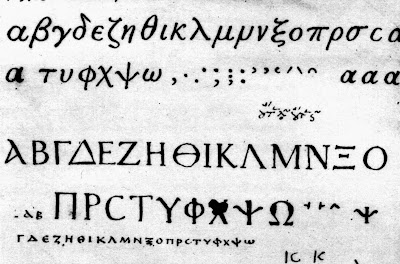 αβγδεζηθικλμμνξοπρσςα
α τυφχψω , . · : ; ; : ʼ ʼ ʽ ´ / \ ^ ααα
ΑΒΓΔΕΖΗΘΙΚΛΜΝΞΟ
αβ ΠΡϹΤΥΦΧΨΩ Ψ
ΓΔΕΖΗΘΙΚΛΜΝΞΟΠΡϹΤΥΦΧΨω
ΙϹ Κ